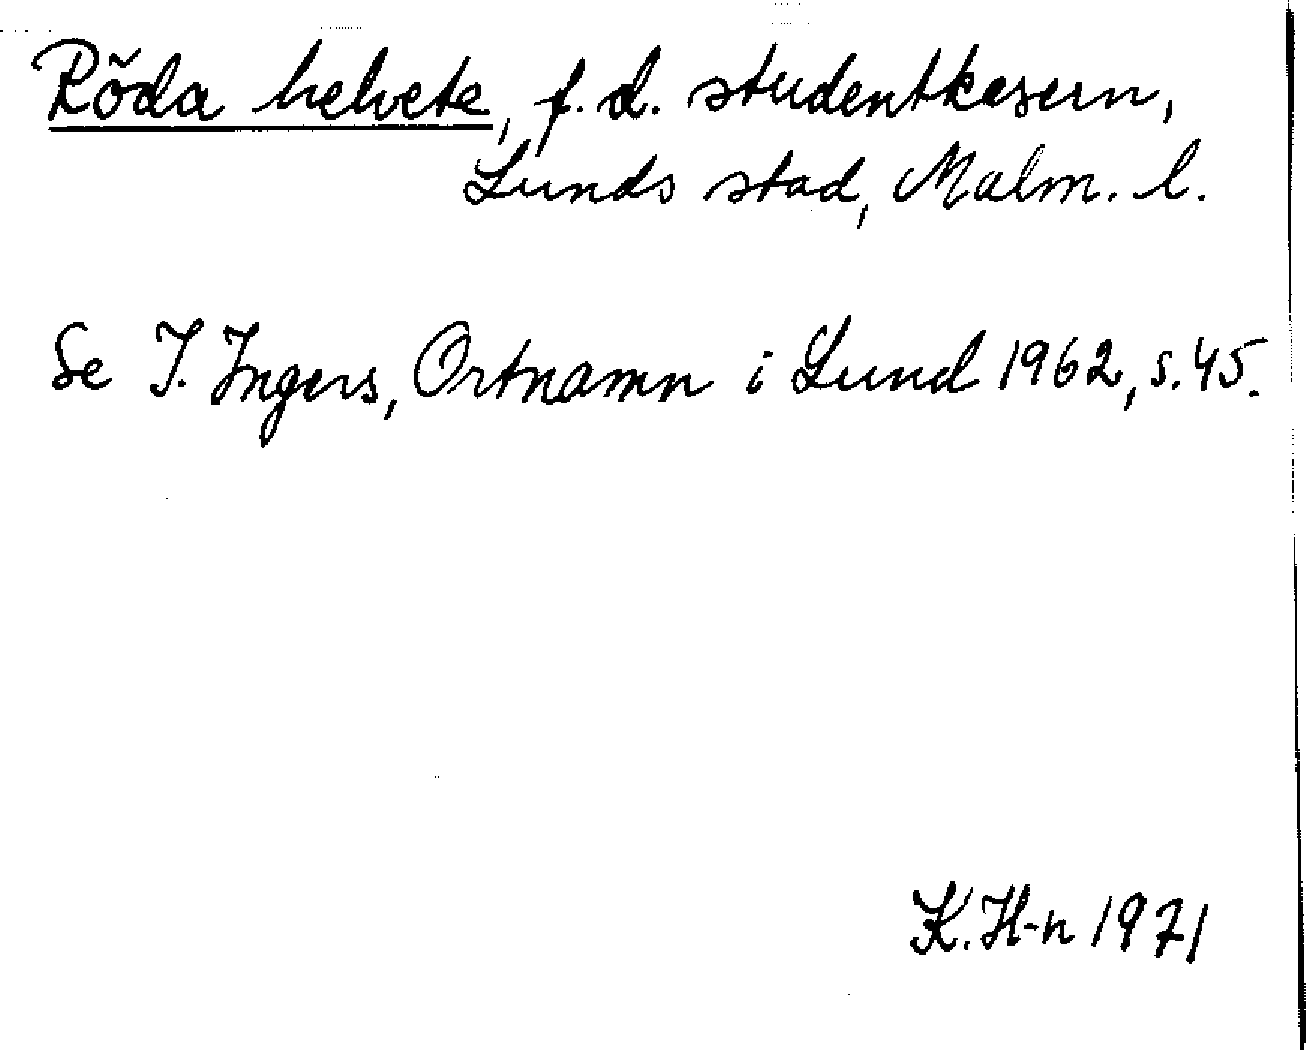 Röda helvete, f.d. studentkasern,
Lunds stad, Malm. l.
Se I. Ingers, Ortnamn i Lund 1962, s. 45.
K. H-n 1971